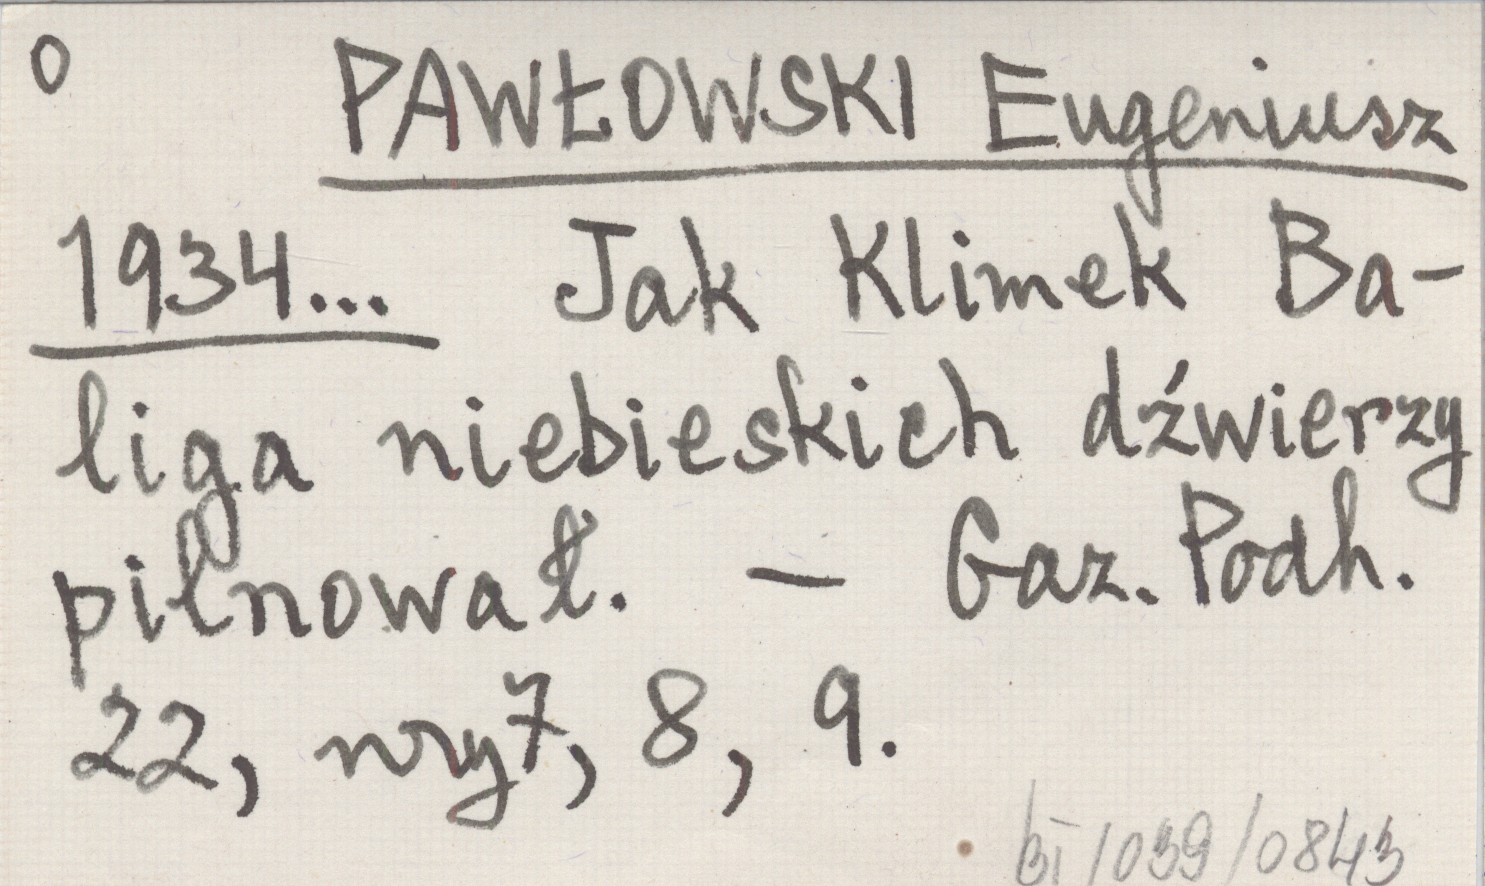 0 PAWŁOWSKI Eugeniusz
1934... Jak Klimek Ba-
liga niebieskich dźwierzy
pilnował. — Gaz. Podh.
22, nry 7, 8, 9.
bī/039/0843